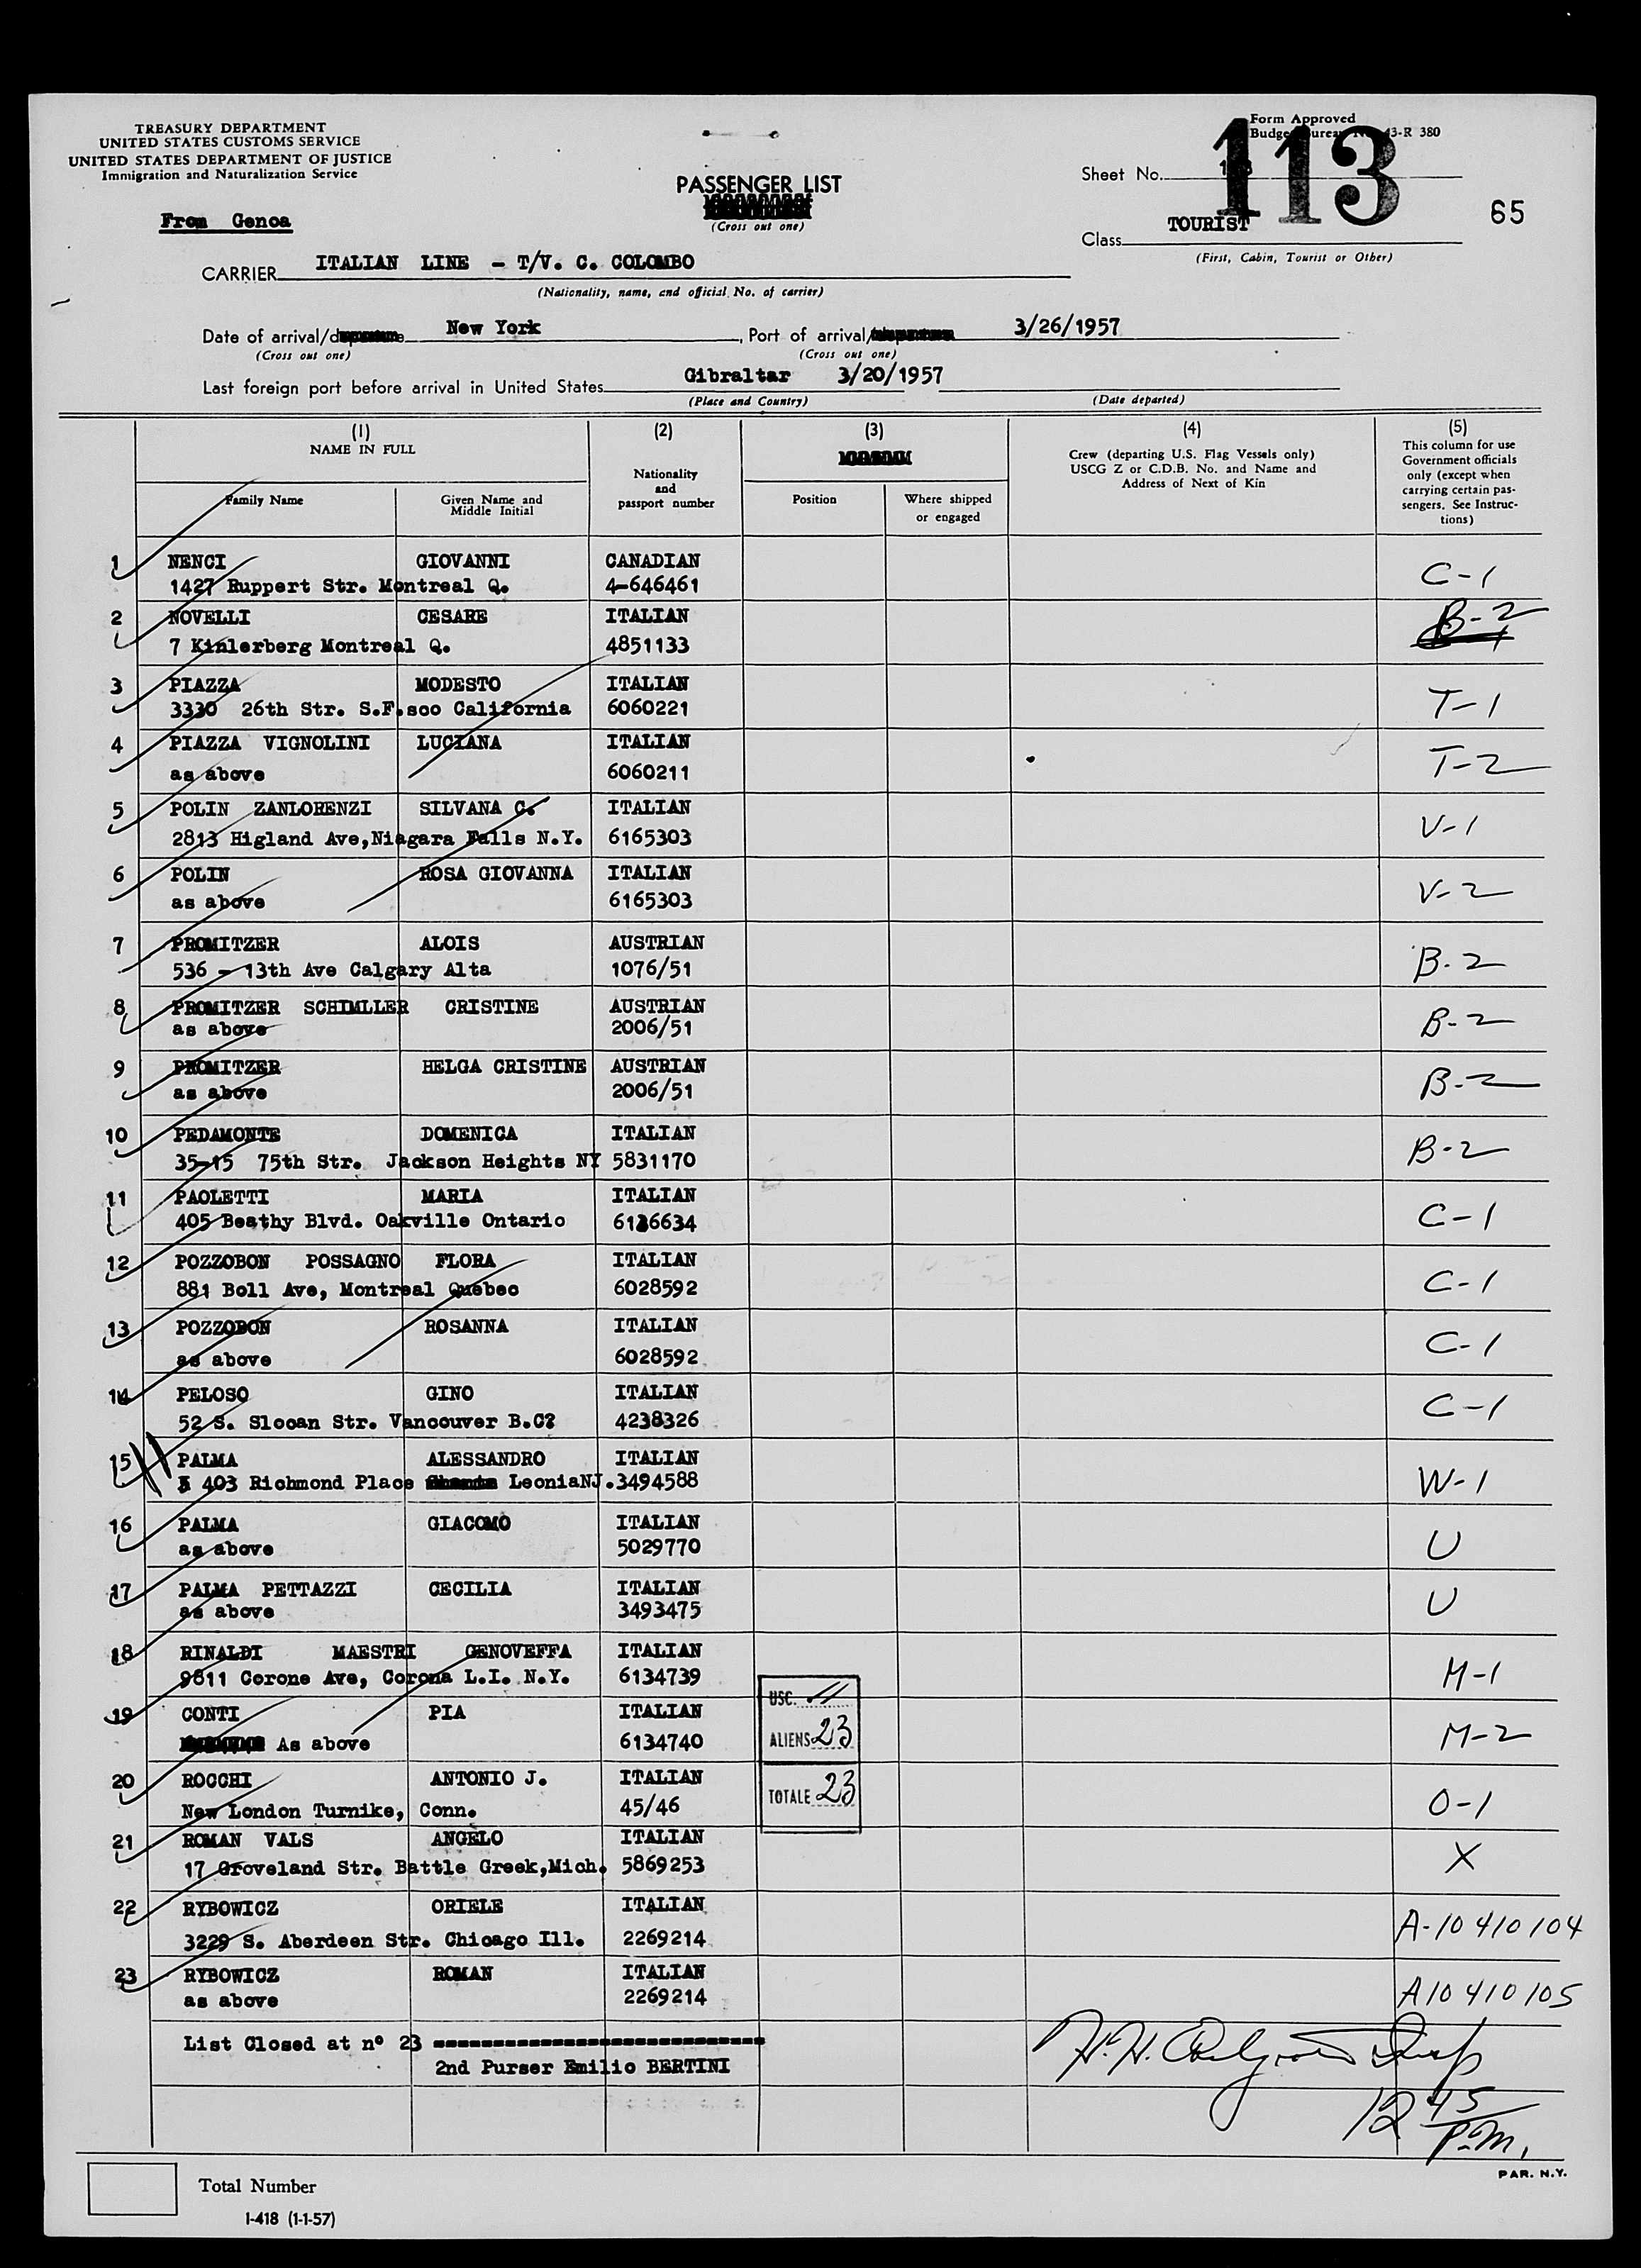 TREASURY DEPARTMENT
UNITED STATES CUSTOMS SERVICE
UNITED STATES DEPARTMENT OF JUSTICE
Immigration and Naturalization Service
Form Approved
Budget Bureau No. 43-R 380
Sheet No.
113
65
PASSENGER LIST
(Cross out one)
From Genoa
Class TOURIST
(First, Cabin, Tourist or Other)
CARRIER ITALIAN LINE - T/V. C. COLOMBO
(Nationality, name, and official No. of carrier)
Date of arrival/ New York , Port of arrival/ 3/26/1957
(Cross out one) (Cross out one)
Last foreign port before arrival in United States Gibraltar 3/20/1957
(Place and Country) (Date departed)
(1) (2) (3) (4) (5)
NAME IN FULL
Family Name
Given Name and Middle Initial
Nationality and passport number
Position
Where shipped or engaged
Crew (departing U.S. Flag Vessels only)
USCG Z or C.D.B. No. and Name and
Address of Next of Kin
This column for use
Government officials
only (except when
carrying certain pas-
sengers. See Instruc-
tions)
1 NENCI GIOVANNI CANADIAN C-1
1427 Ruppert Str. Montreal Q. 4-646461
2 NOVELLI CESARE ITALIAN B-2
7 Kinlerberg Montreal Q. 4851133
3 PIAZZA MODESTO ITALIAN T-1
3330 26th Str. S.F.sco California 6060221
4 PIAZZA VIGNOLINI LUCIANA ITALIAN T-2
as above 6060211
5 POLIN ZANLORENZI SILVANA C. ITALIAN V-1
2813 Higland Ave,Niagara Falls N.Y. 6165303
6 POLIN ROSA GIOVANNA ITALIAN V-2
as above 6165303
7 PROMITZER ALOIS AUSTRIAN B-2
536 - 13th Ave Calgary Alta 1076/51
8 PROMITZER SCHIMLLER CRISTINE AUSTRIAN B-2
as above 2006/51
9 PROMITZER HELGA CRISTINE AUSTRIAN B-2
as above 2006/51
10 PEDAMONTE DOMENICA ITALIAN B-2
35-15 75th Str. Jackson Heights NY 5831170
11 PAOLETTI MARIA ITALIAN C-1
405 Beathy Blvd. Oakville Ontario
12 POZZOBON POSSAGNO FLORA ITALIAN C-1
881 Boll Ave, Montreal Quebec 6028592
13 POZZOBON ROSANNA ITALIAN C-1
as above 6028592
14 PELOSO GINO ITALIAN C-1
52 S. Slocan Str. Vancouver B.C? 4238326
15 PALMA ALESSANDRO ITALIAN W-1
403 Richmond Place LeoniaNJ. 3494588
16 PALMA GIACOMO ITALIAN U
as above 5029770
17 PALMA PETTAZZI CECILIA ITALIAN U
as above 3493475
18 RINALDI MAESTRI GENOVEFFA ITALIAN M-1
9811 Corone Ave, Corona L.I. N.Y. 6134739
19 CONTI PIA ITALIAN M-2
As above 6134740
USC. //
ALIENS 23
TOTALE 23
20 ROCCHI ANTONIO J. ITALIAN O-1
New London Turnike, Conn. 45/46
21 ROMAN VALS ANGELO ITALIAN X
17 Groveland Str. Battle Greek,Mich. 5869253
22 RYBOWICZ ORIELE ITALIAN A-10410104
3229 S. Aberdeen Str. Chicago Ill. 2269214
23 RYBOWICZ ROMAN ITALIAN A10410105
as above 2269214
List Closed at nº 23
2nd Purser Emilio BERTINI
12 45
P.M.
PAR. N.Y.
Total Number
I-418 (1-1-57)